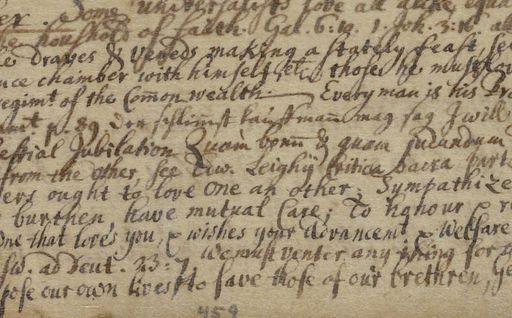 er. Some universalists love all alike equa
houshold of faith. Gal. 6:10. 1. Joh. 3:16. all
drapes & making a stately feast, se
nce chamber with himself &c those he must
regimt of the Comon wealth. Every man is his
p. 89 may say I will
lestial Jubilation Quam bonū & quam jucundum
from the other, see Edw. Leighs Critica Sacra part
ers ought to love one an other; Sympathize
burthen, have mutual Care; To honour & re
one that loves you, & wishes your advancemt & welfare
ad Deut. 23: We must venter any thing for
pose our own lives to save those of our brethren, Ge
459